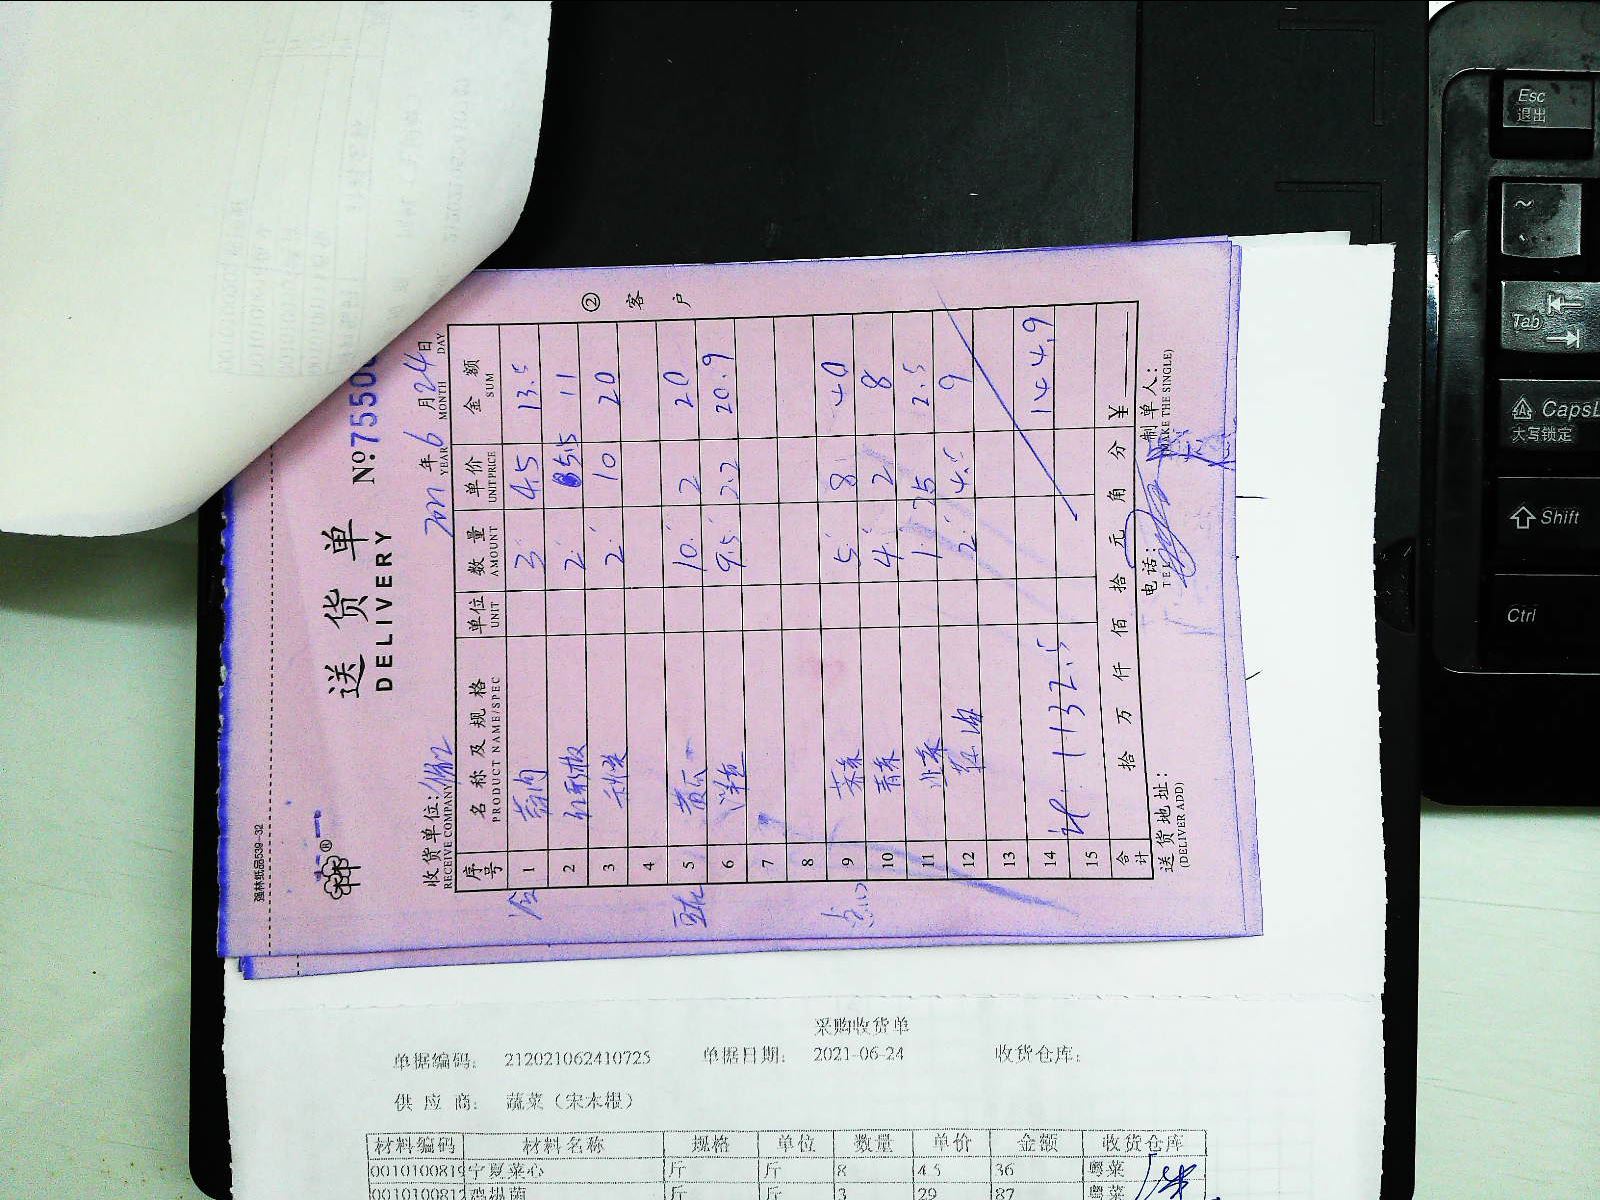 强林纸品539-32
送货单 №7550
DELIVERY
2021年6月24日
YEAR MONTH DAY
收货单位:
RECEIVE COMPANY
② 客户
序号 名称及规格 单位 数量 单价 金额
PRODUCT NAME/SPEC UNIT AMOUNT UNIT PRICE SUM
1 3 4.5 13.5
2 2 5.5 11
3 2 10 20
4
5 黄瓜 10 2 20
6 洋芋 9.5 2.2 20.9
7
8
9 5 8 40
10 青菜 4 2 8
11 韭菜 1 25 2.5
12 2 4.5 9
13
14 计 1132.5 144.9
15
合计 拾 万 仟 佰 拾 元 角 分 ¥
送货地址: 电话: 制单人:
(DELIVER ADD) TEL (MAKE THE SINGLE)
采购收货单
单据编码: 212021062410725 单据日期: 2021-06-24 收货仓库:
供应商: 蔬菜(宋木根)
材料编码 材料名称 规格 单位 数量 单价 金额 收货仓库
0010100819 宁夏菜心 斤 斤 8 4.5 36 粤菜
斤 斤 3 29 87 粤菜
Esc
退出
~
Tab
CapsL
大写锁定
Shift
Ctrl